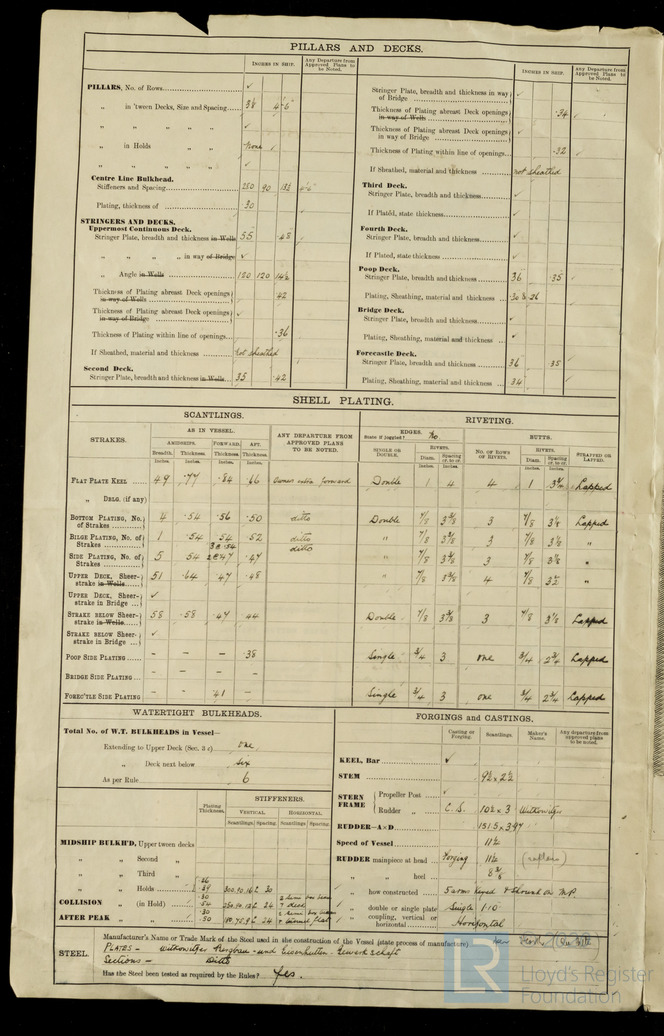 PILLARS AND DECKS.
INCHES IN SHIP.
Any Departure from Approved Plans to be Noted.
PILLARS, No. of Rows
„ in 'tween Decks, Size and Spacing
„ „ „ „
„ in Holds None
„ „
Centre Line Bulkhead.
Stiffeners and Spacing 250 90
Plating, thickness of .30
STRINGERS AND DECKS.
Uppermost Continuous Deck.
Stringer Plate, breadth and thickness in Wells 55 .48
„ „ „ „ in way of Bridge
„ Angle in Wells 120 120
Thickness of Plating abreast Deck openings in way of Wells .42
Thickness of Plating abreast Deck openings in way of Bridge
Thickness of Plating within line of openings .36
If Sheathed, material and thickness not sheathed
Second Deck.
Stringer Plate, breadth and thickness in Wells 35 .42
INCHES IN SHIP.
Any Departure from Approved Plans to be Noted.
Stringer Plate, breadth and thickness in way of Bridge
Thickness of Plating abreast Deck openings in way of Wells .34
Thickness of Plating abreast Deck openings in way of Bridge
Thickness of Plating within line of openings .32
If Sheathed, material and thickness not sheathed
Third Deck.
Stringer Plate, breadth and thickness
If Plated, state thickness
Fourth Deck.
Stringer Plate, breadth and thickness
If Plated, state thickness
Poop Deck.
Stringer Plate, breadth and thickness 36 .35
Plating, Sheathing, material and thickness
Bridge Deck.
Stringer Plate, breadth and thickness
Plating, Sheathing, material and thickness
Forecastle Deck.
Stringer Plate, breadth and thickness 36 .35
Plating, Sheathing, material and thickness .34
SHELL PLATING.
SCANTLINGS.
RIVETING.
STRAKES.
AS IN VESSEL.
AMIDSHIPS. FORWARD. AFT.
Breadth. Thickness. Thickness. Thickness.
Inches. Inches. Inches. Inches.
ANY DEPARTURE FROM APPROVED PLANS TO BE NOTED.
EDGES.
State if joggled? No.
SINGLE OR DOUBLE.
RIVETS.
Diam. Spacing cr. to cr.
Inches. Inches.
BUTTS.
NO. OF ROWS OF RIVETS.
RIVETS.
Diam. Spacing cr. to cr.
Inches. Inches.
STRAPPED OR LAPPED.
FLAT PLATE KEEL 49 .77 .84 .66 Owners extra forward Double 1 4 4 1 Lapped
„ DBLG. (if any)
BOTTOM PLATING, No. of Strakes 4 .54 .56 .50 ditto Double 7/8 3 7/8 Lapped
BILGE PLATING, No. of Strakes 1 .54 .54 .52 ditto „ 7/8 3 7/8 „
SIDE PLATING, No. of Strakes 5 .54 .47 ditto „ 7/8 3 7/8 „
UPPER DECK, Sheerstrake in Wells 51 .64 .47 .48 „ 7/8 4 7/8 „
UPPER DECK, Sheerstrake in Bridge
STRAKE BELOW Sheerstrake in Wells 58 .58 .47 .44 Double 7/8 3 7/8 Lapped
STRAKE BELOW Sheerstrake in Bridge
POOP SIDE PLATING – – – .38 Single 3/4 3 one 3/4 2 3/4 Lapped
BRIDGE SIDE PLATING
FOREC'TLE SIDE PLATING – – .41 – Single 3/4 3 one 3/4 2 3/4 Lapped
WATERTIGHT BULKHEADS.
Total No. of W.T. BULKHEADS in Vessel—
Extending to Upper Deck (Sec. 3 c) one
„ Deck next below six
As per Rule 6
Plating Thickness.
STIFFENERS.
VERTICAL HORIZONTAL
Scantlings. Spacing. Scantlings. Spacing.
MIDSHIP BULKH'D, Upper tween decks
„ „ Second „
„ „ Third „
„ „ Holds 30
COLLISION „ (in Hold) 24
AFTER PEAK „ „ 24
FORGINGS AND CASTINGS.
Casting or Forging. Scantlings. Maker's Name. Any departure from approved plans to be noted.
KEEL, Bar
STEM 9½ x 2½
STERN FRAME
Propeller Post
Rudder „ C.S. 10½ x 3 Witkowitzer
RUDDER—A×D 151.5 x 3.97
Speed of Vessel 11½
RUDDER mainpiece at head Forging 11½
„ „ heel
„ how constructed
„ double or single plate Single 1.10"
„ coupling, vertical or horizontal Horizontal
STEEL.
Manufacturer's Name or Trade Mark of the Steel used in the construction of the Vessel (state process of manufacture)
Plates – Witkowitzer Bergbau- und Eisenhutten- Gewerkschaft
Sections – Ditto
Has the Steel been tested as required by the Rules? Yes.
LR
Lloyd's Register
Foundation